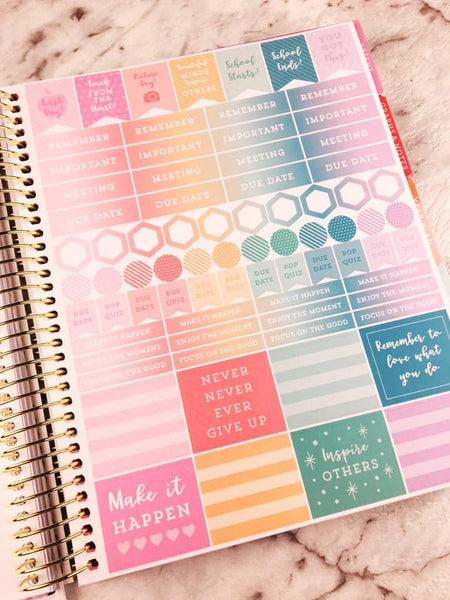 First
Day!
Teach
FROM THE
Heart!
Picture
Day!
Beautiful
MINDS
Inspire
OTHERS
School
Starts!
School
Ends!
YOU
GOT
this!
REMEMBER
REMEMBER
REMEMBER
REMEMBER
IMPORTANT
IMPORTANT
IMPORTANT
IMPORTANT
MEETING
MEETING
MEETING
MEETING
DUE DATE
DUE DATE
DUE DATE
DUE DATE
DUE
DATE
POP
QUIZ
DUE
DATE
POP
QUIZ
DUE
DATE
POP
QUIZ
DUE
DATE
POP
QUIZ
DUE
DATE
POP
QUIZ
DUE
DATE
POP
QUIZ
MAKE IT HAPPEN
MAKE IT HAPPEN
MAKE IT HAPPEN
MAKE IT HAPPEN
ENJOY THE MOMENT
ENJOY THE MOMENT
ENJOY THE MOMENT
ENJOY THE MOMENT
FOCUS ON THE GOOD
FOCUS ON THE GOOD
FOCUS ON THE GOOD
FOCUS ON THE GOOD
NEVER
NEVER
EVER
GIVE UP
Remember to
love what
you do
Make it
HAPPEN
Inspire
OTHERS